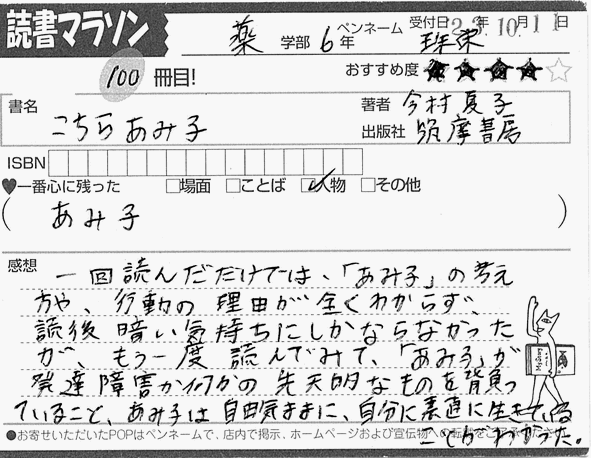 読書マラソン
薬 学部 6年 ペンネーム 珠東 受付日 23年10月11日
100 冊目! おすすめ度 ★★★★☆
書名 こちらあみ子
著者 今村夏子
出版社 筑摩書房
ISBN
♥一番心に残った □場面 □ことば ☑人物 □その他
( あみ子 )
感想
一回読んだだけでは、「あみ子」の考え
方や、行動の理由が全くわからず、
読後暗い気持ちにしかならなかった
が、もう一度読んでみて、「あみ子」が
発達障害か何かの先天的なものを背負っ
ていること、あみ子は自由気ままに、自分に素直に生きている
ことがわかった。
●お寄せいただいたPOPはペンネームで、店内で掲示、ホームページおよび宣伝物への転載をご了承ください